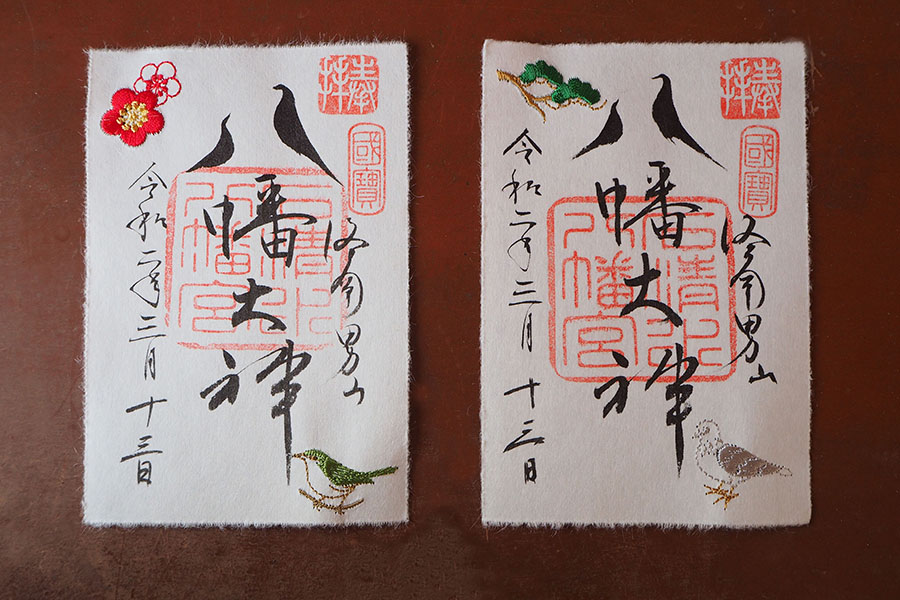 奉拝
國寶
洛南男山
八幡大神
石清水
八幡宮
令和二年三月十三日
奉拝
國寶
洛南男山
八幡大神
石清水
八幡宮
令和二年三月十三日